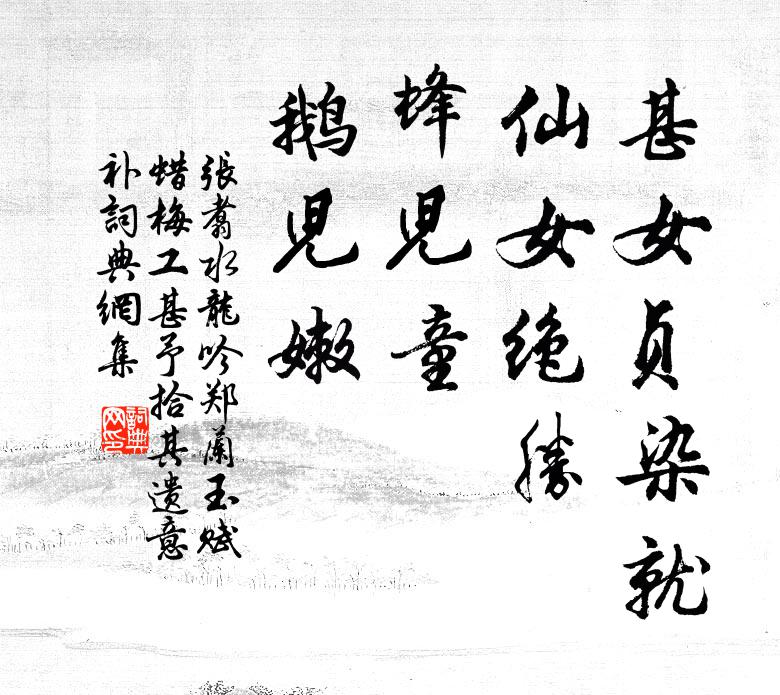 甚女贞染就
仙女绝胜
蜂児童
鹅児嫩
張翥水龍吟郑蘭玉赋
蜡梅工甚予拾其遗意
补詞典網集
詞典网印